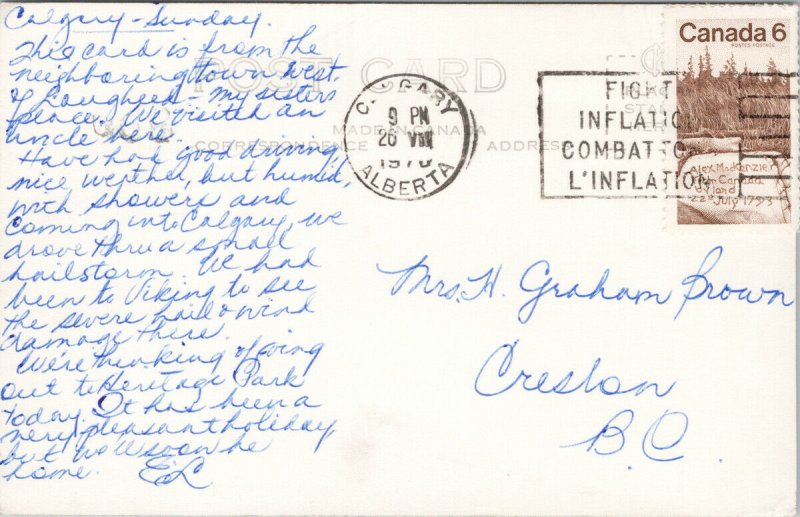 Calgary - Sunday.
This card is from the
neighboring town west
of Lougheed - my sisters
place. We visited an
uncle here.
Have had good driving,
nice weather, but humid,
with showers and
coming into Calgary, we
drove thru a small
hailstorm. We had
been to Viking to see
the severe hail & wind
damage there.
We're thinking of going
out to Heritage Park
today. It has been a
very pleasant holiday,
but we'll soon be
home. EL
POST CARD
MADE IN CANADA
CORRESPONDENCE
ADDRESS
CALGARY
9 PM
26
1970
ALBERTA
FIGHT
INFLATION
COMBATTONS
L'INFLATION
Canada 6
POSTES POSTAGE
Alex MacKenzie
from Canada
by land
22d July 1793
Mrs. H. Graham Brown
Creston
B.C.